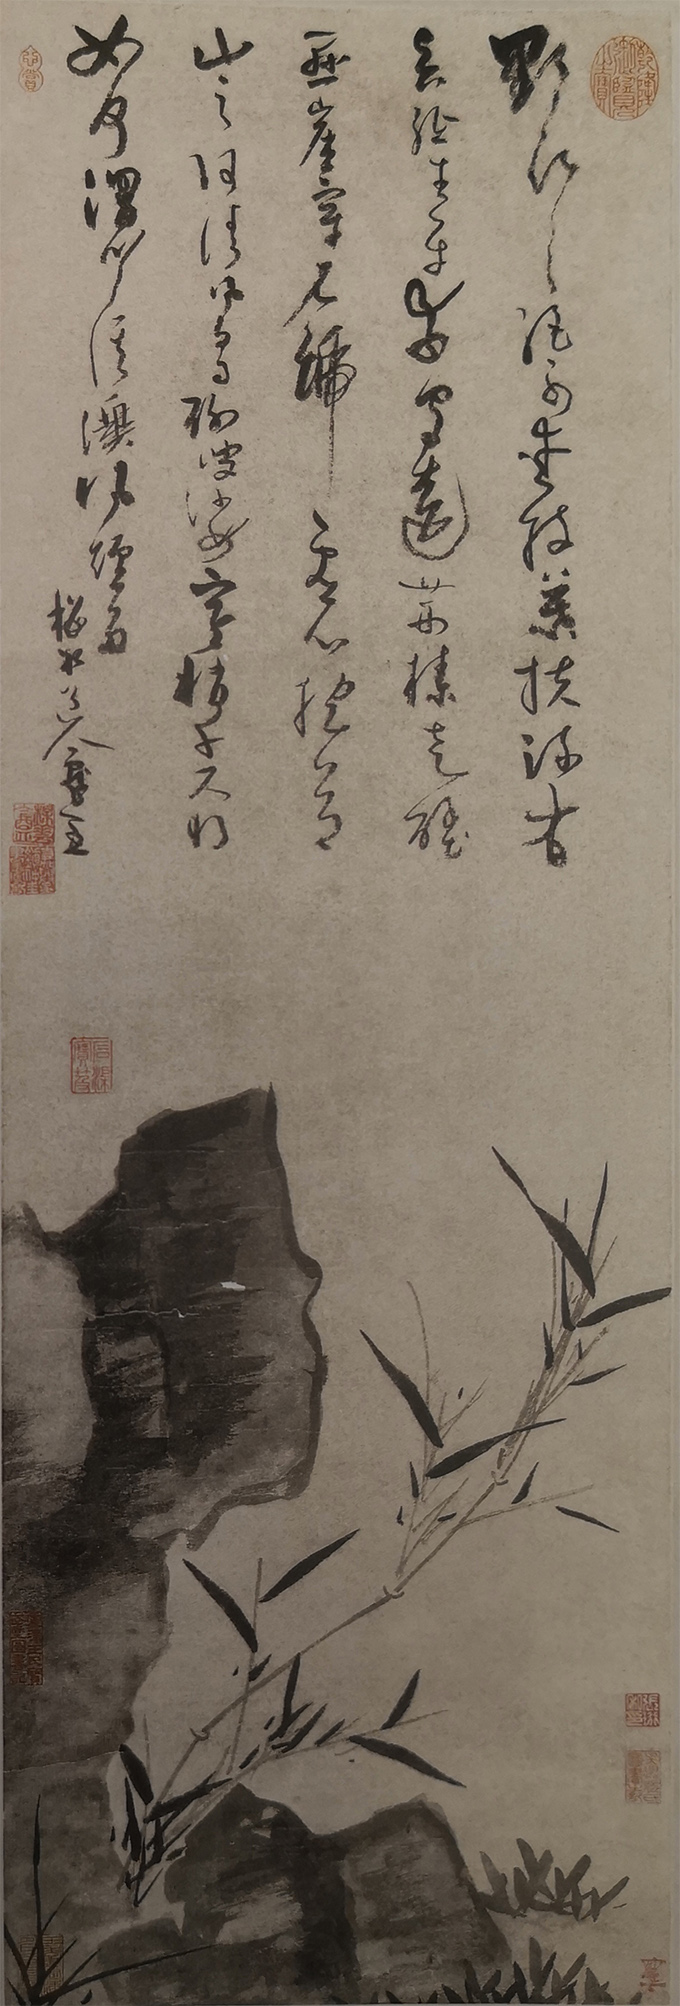 野竹〻〻絕可愛枝葉扶疎有
真態生平素守遠荊榛走壁
懸崖穿石罅虛心抱節
山之阿清風白月聊婆娑寒梢千尺將
如何渭川淇澳風煙多
梅花道人戲墨
石渠寶笈